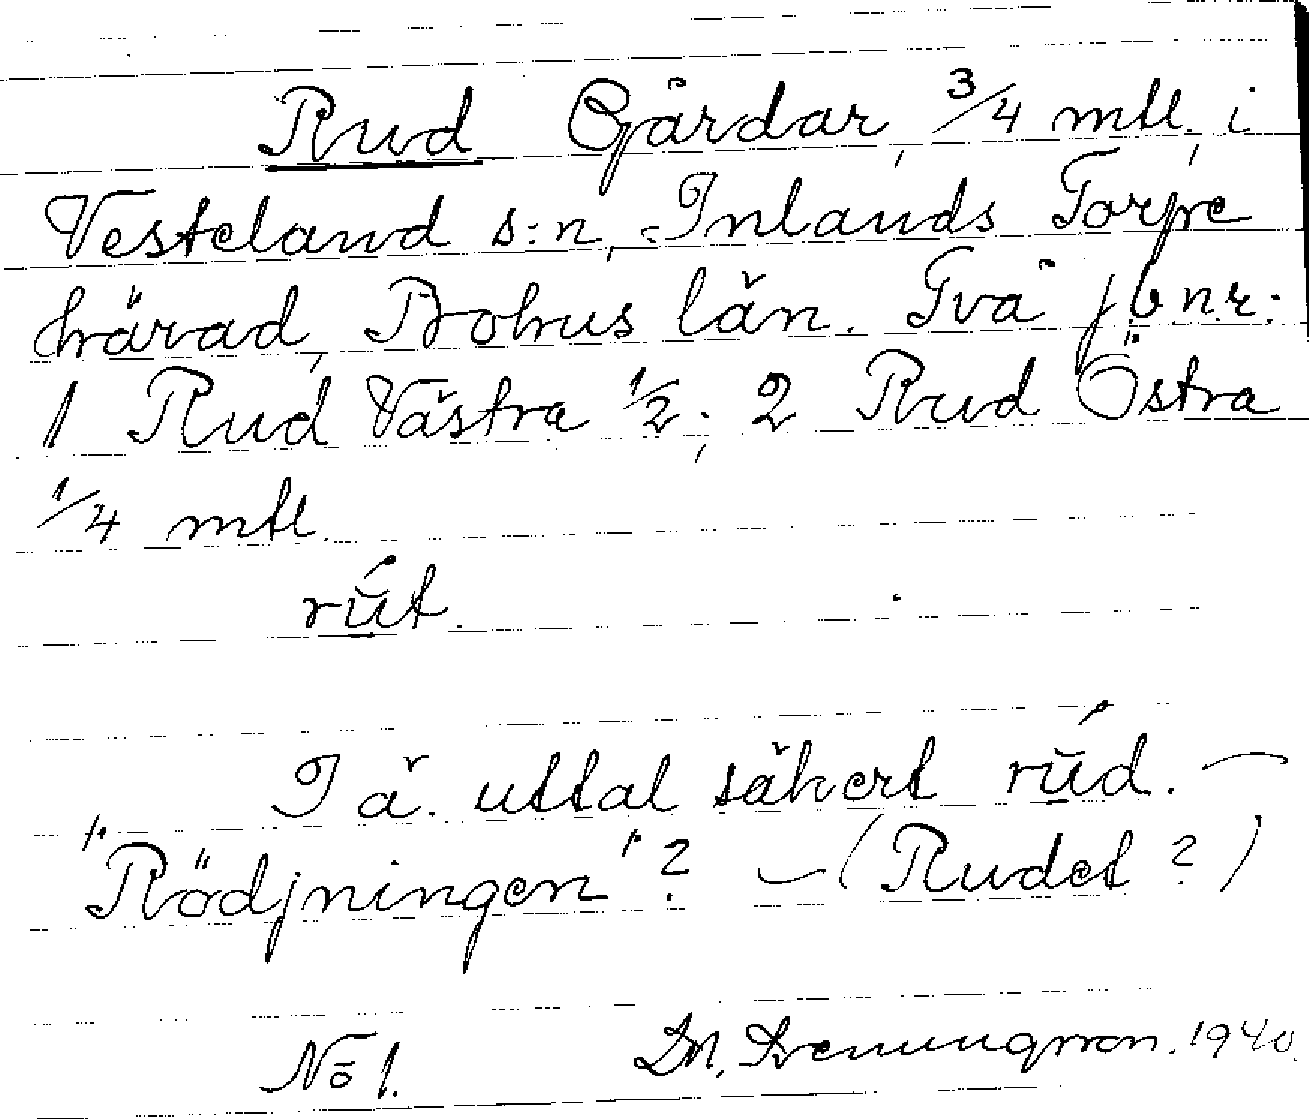 Rud Gårdar, 3/4 mtl. i
Vesteland s:n, Inlands Torpe
härad, Bohus län. Två jbnr:
1 Rud Västra 1/2; 2 Rud Östra
1/4 mtl.
rút.
I ä. uttal säkert rúd. —
"Rödjningen"? — (Rudet?)
No 1. 1940.